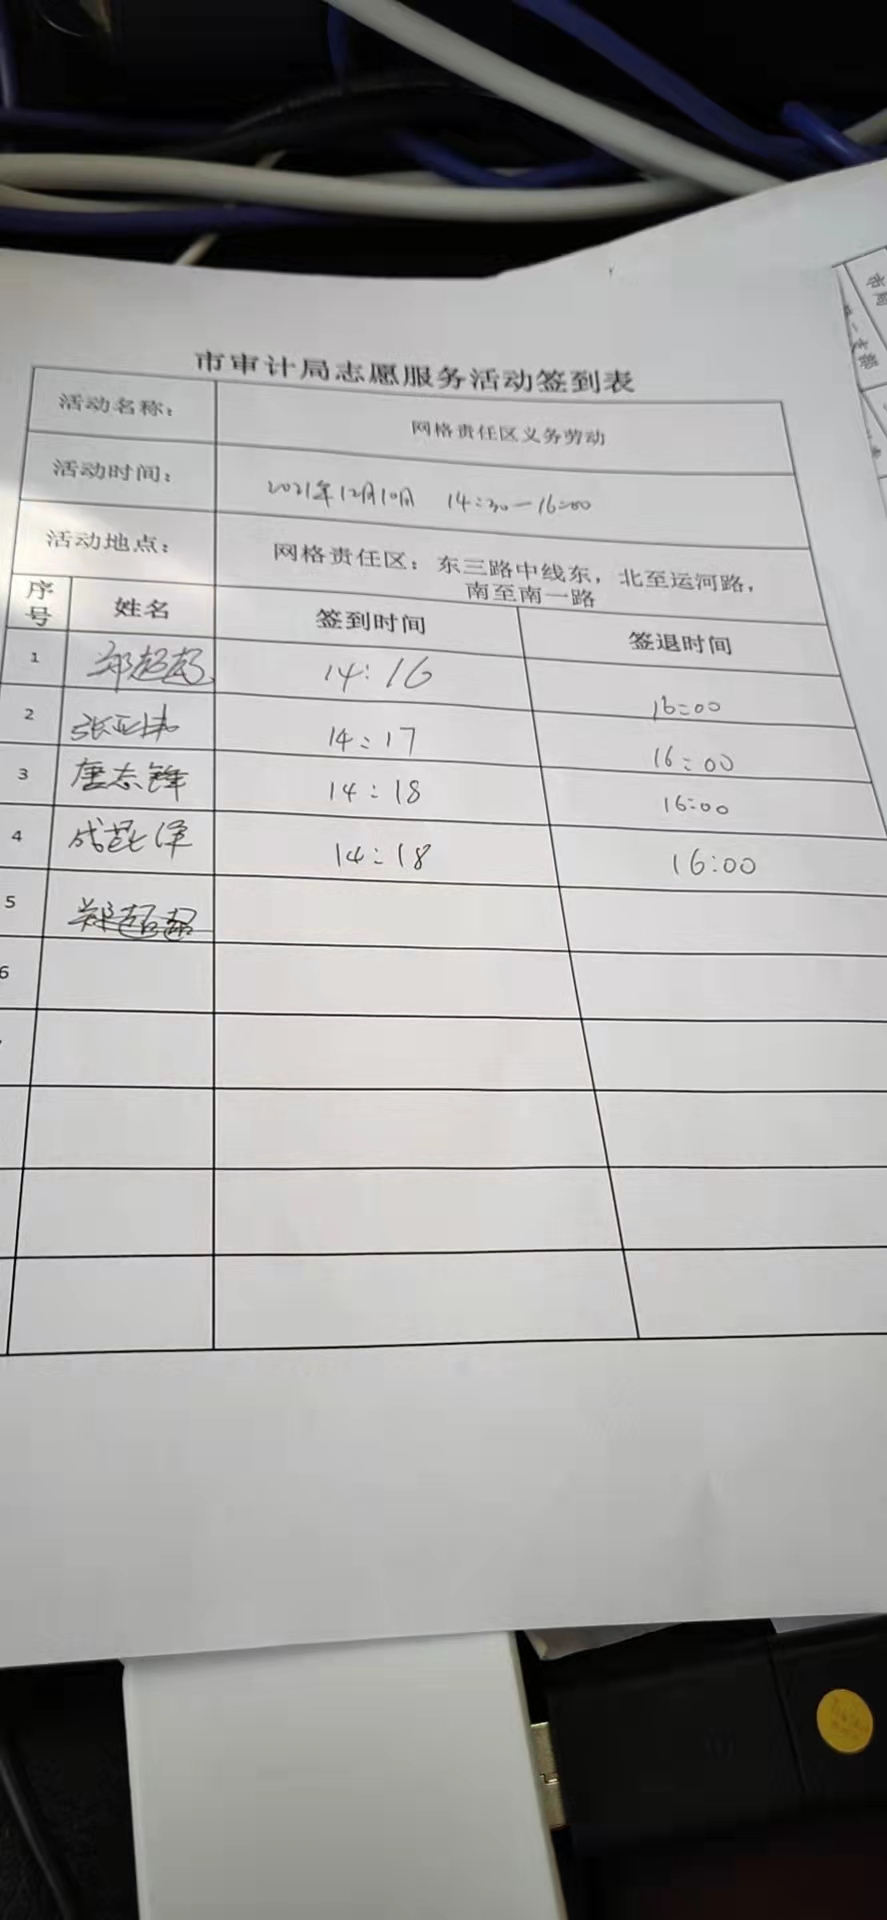 市审计局志愿服务活动签到表
活动名称： 网格责任区义务劳动
活动时间： 2021年12月10日 14:30—16:00
活动地点： 网格责任区：东三路中线东，北至运河路，
南至南一路
序号 姓名 签到时间 签退时间
1 14:16 16:00
2 张亚伟 14:17 16:00
3 唐志锋 14:18 16:00
4 成昆泽 14:18 16:00
5 郑超超
6
市局
支部